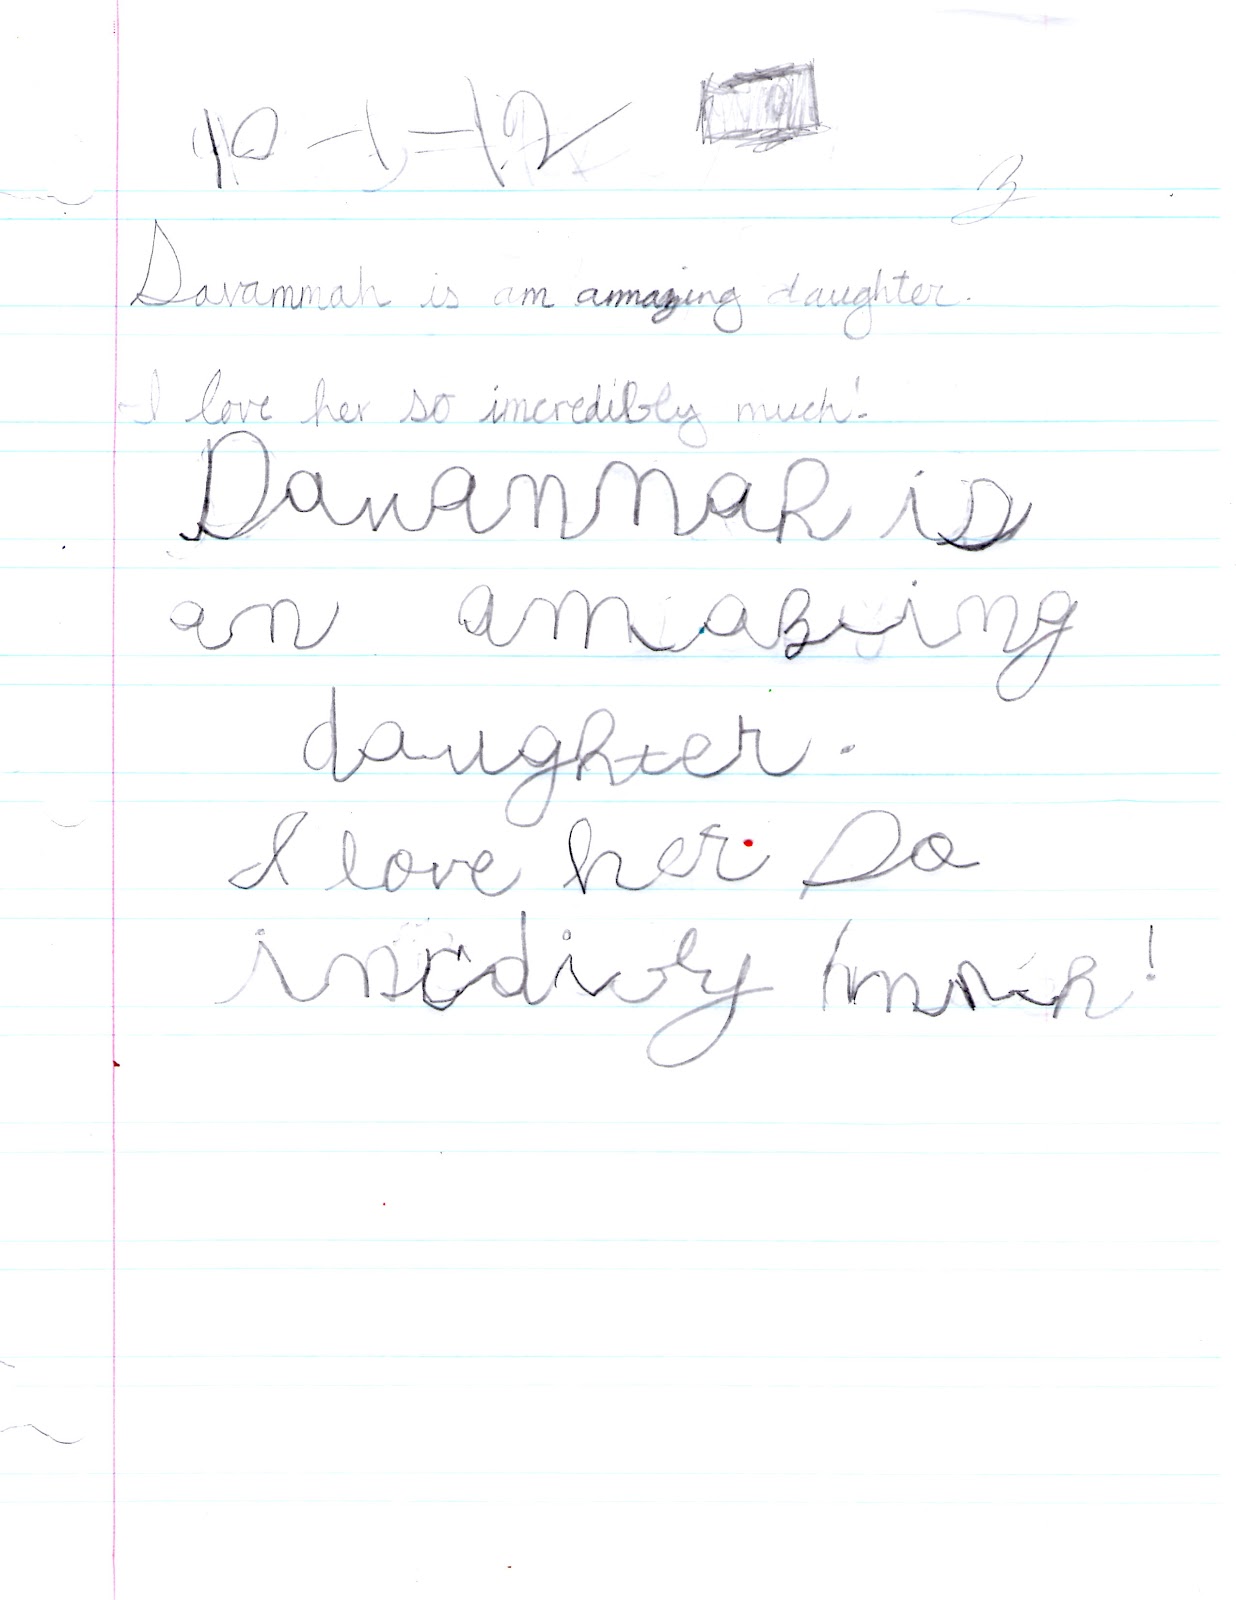 Savannah is an amazing daughter.
I love her so incredibly much!
Savannah is
an amazing
daughter.
I love her so
incdivly much!